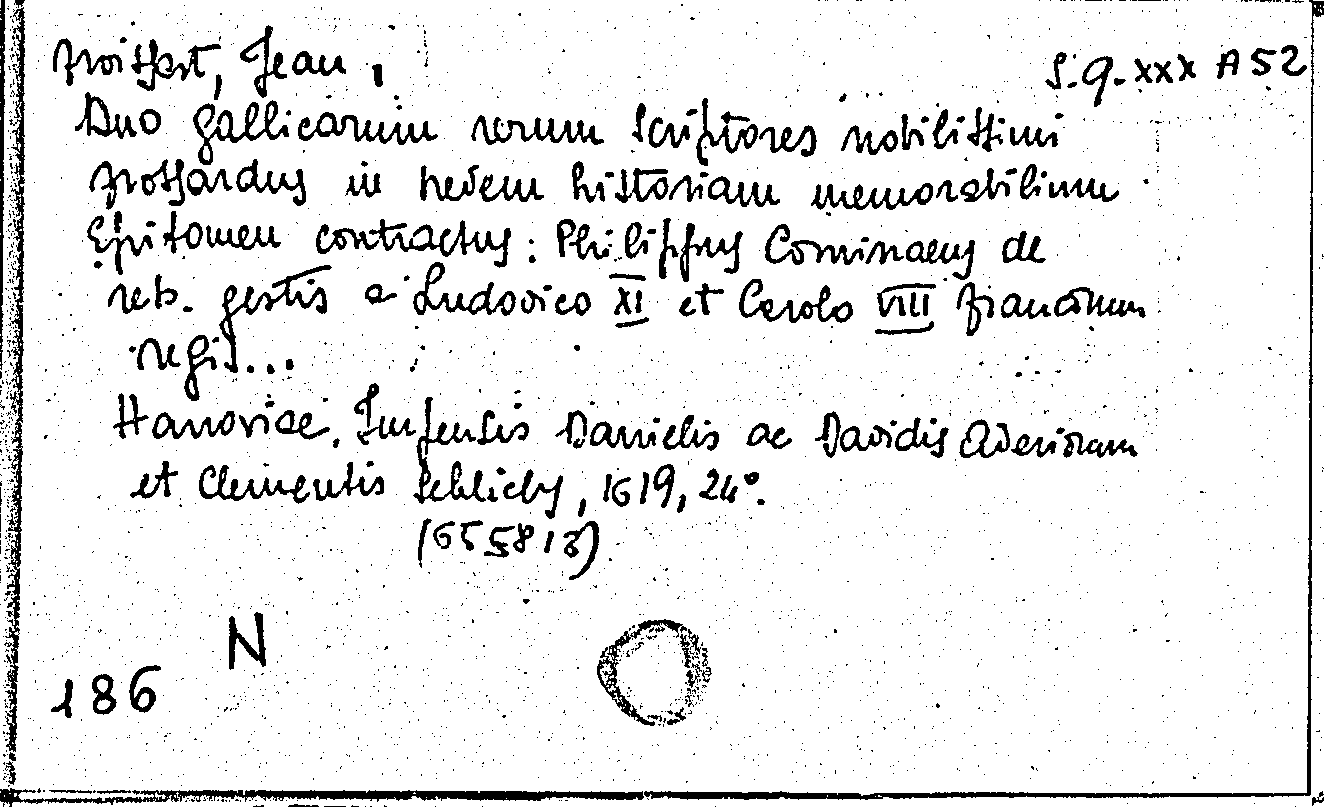 Froissart, Jean,
S.Q. XXX A 52
Duo gallicarum rerum scriptores nobilissimi
Frossardus in brevem historiam memorabilium
Epitomen contractus: Philippus Cominaeus de
reb. gestis a Ludovico XI et Carolo VIII francorum
regib...
Hanoviae. Impensis Danielis ac Davidis Aubriorum
et Clementis Schleichy, 1619, 24°.
(655813)
N
186